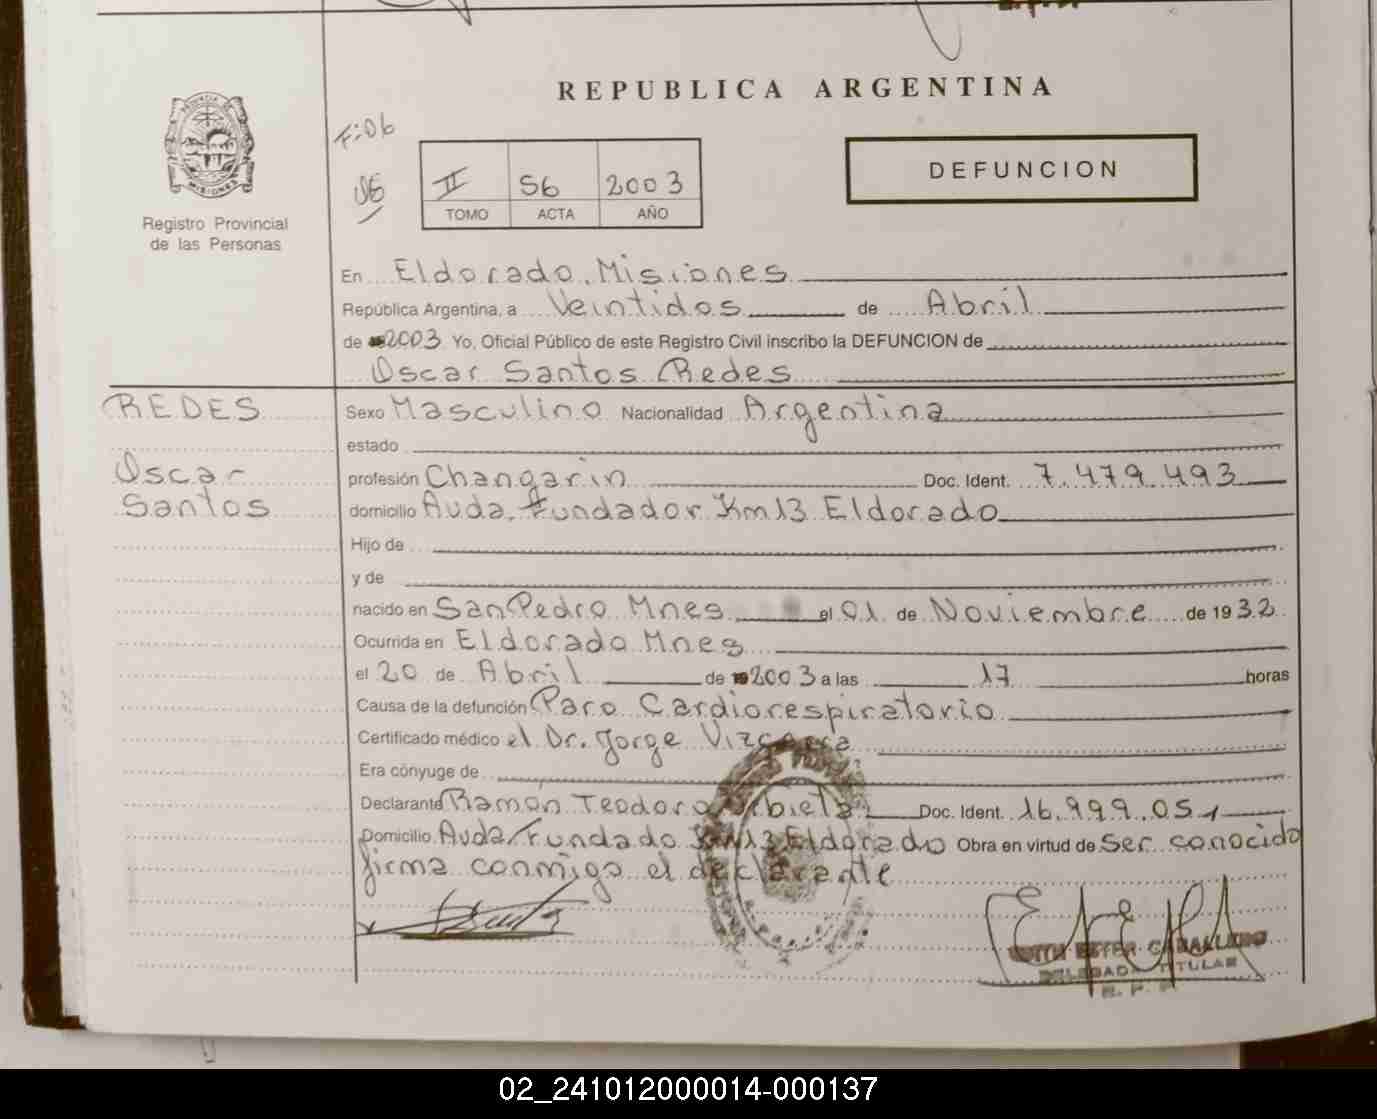 REPUBLICA ARGENTINA
DEFUNCION
F:06
06
II 56 2003
TOMO ACTA AÑO
PROVINCIA DE MISIONES
Registro Provincial
de las Personas
En Eldorado, Misiones
República Argentina, a Veintidos de Abril
de 2003 Yo, Oficial Público de este Registro Civil inscribo la DEFUNCION de
Oscar Santos Redes
REDES
Oscar
Santos
Sexo Masculino Nacionalidad Argentina
estado
profesión Changarin Doc. Ident. 7.479.493
domicilio Avda. Fundador Km 13 Eldorado
Hijo de
y de
nacido en San Pedro Mnes el 01 de Noviembre de 1932
Ocurrida en Eldorado Mnes
el 20 de Abril de 2003 a las 17 horas
Causa de la defunción Paro Cardiorespiratorio
Certificado médico el Dr. Jorge
Era cónyuge de
Declarante Ramón Teodoro Doc. Ident. 16.999.051
Domicilio Avda. Fundado Km 13 Eldorado Obra en virtud de ser conocido
firma conmigo el declarante
ESTER CABALLERO
DELEGADA TITULAR
R. P. P.
02_241012000014-000137